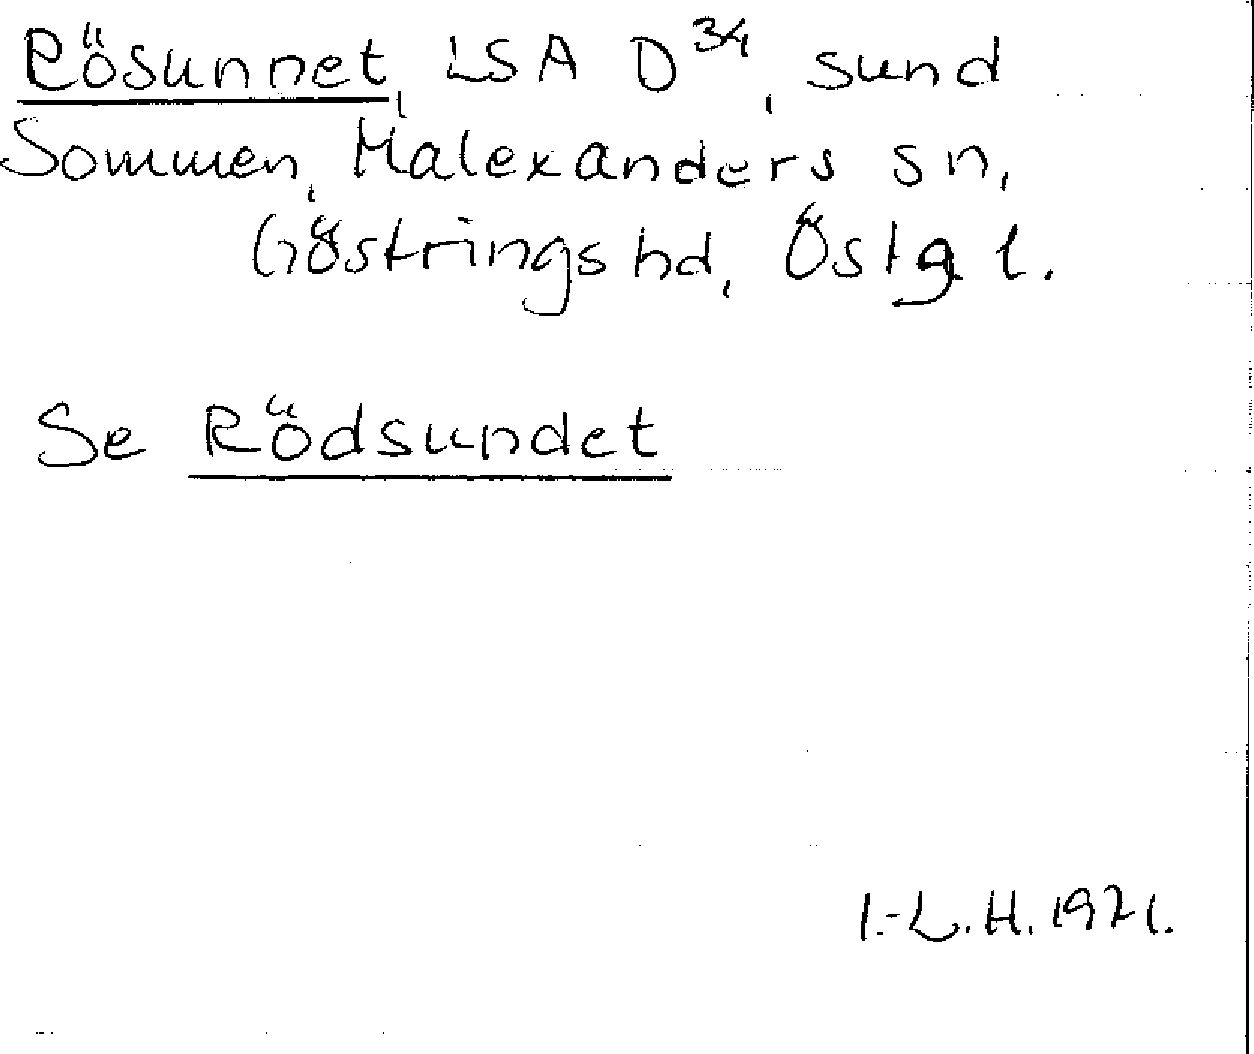 Rösunnet, LSA D³⁴, sund
Sommen, Malexanders sn,
Göstrings hd, Östgl.
Se Rödsundet
I.-L. H. 1971.